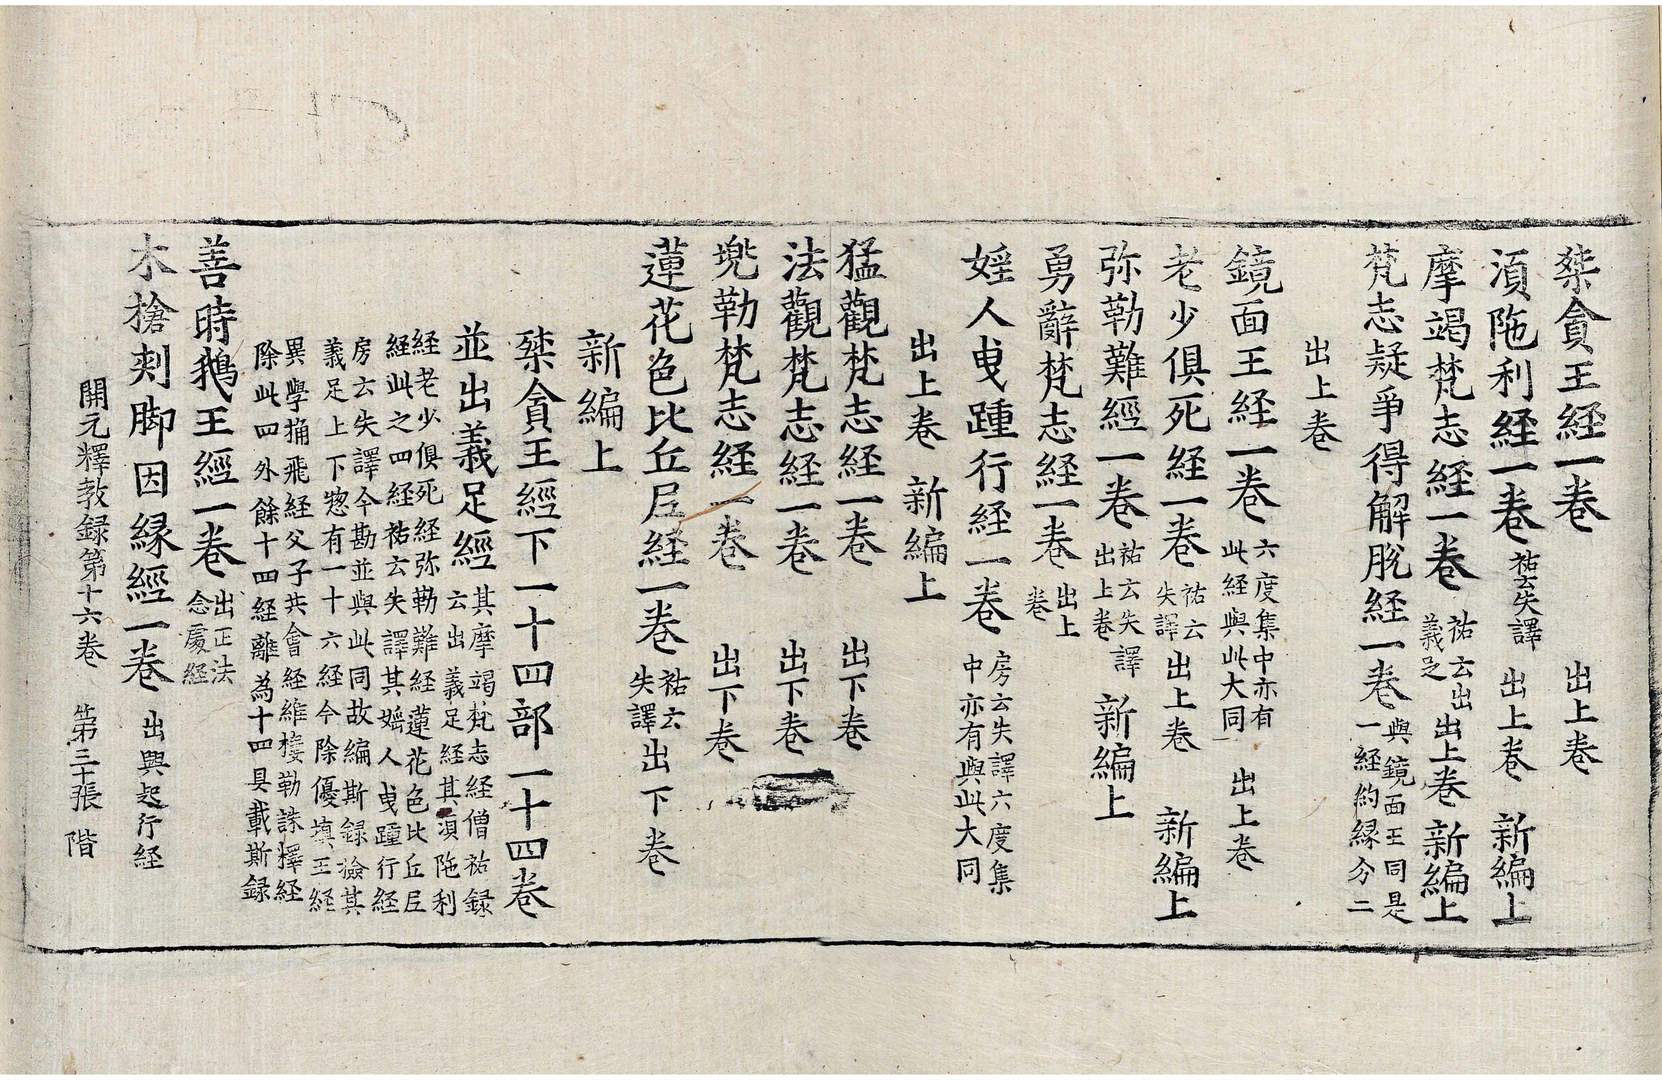 桀貪王経一卷 出上卷
湏陁利経一卷 祐云失譯 出上卷 新編上
摩竭梵志経一卷 祐云出義足 出上卷 新編上
梵志疑爭得解脫経一卷 與鏡面王同是一経約縁分二
出上卷
鏡面王経一卷 六度集中亦有此経與此大同 出上卷
老少俱死経一卷 祐云失譯 出上卷 新編上
弥勒難經一卷 祐云失譯出上卷 新編上
勇辭梵志経一卷 出上卷
婬人曳踵行経一卷 房云失譯六度集中亦有與此大同
出上卷 新編上
猛觀梵志経一卷 出下卷
法觀梵志経一卷 出下卷
兠勒梵志経一卷 出下卷
蓮花色比丘尼経一卷 祐云失譯 出下卷
新編上
桀貪王經下一十四部一十四卷
並出義足經 其摩竭梵志経僧祐録云出義足経其湏陁利
経老少俱死経弥勒難経蓮花色比丘尼経此之四経祐云失譯其婬人曳踵行経
房云失譯今勘並與此同故編斯録撿其義足上下惣有一十六経今除優填王経
異學捔飛経父子共會経維樓勒誅釋経除此四外餘十四経離為十四具載斯録
善時鵝王經一卷 出正法念處経
木槍刾脚因縁經一卷 出興起行経
開元釋教録第十六卷 第三十張 階